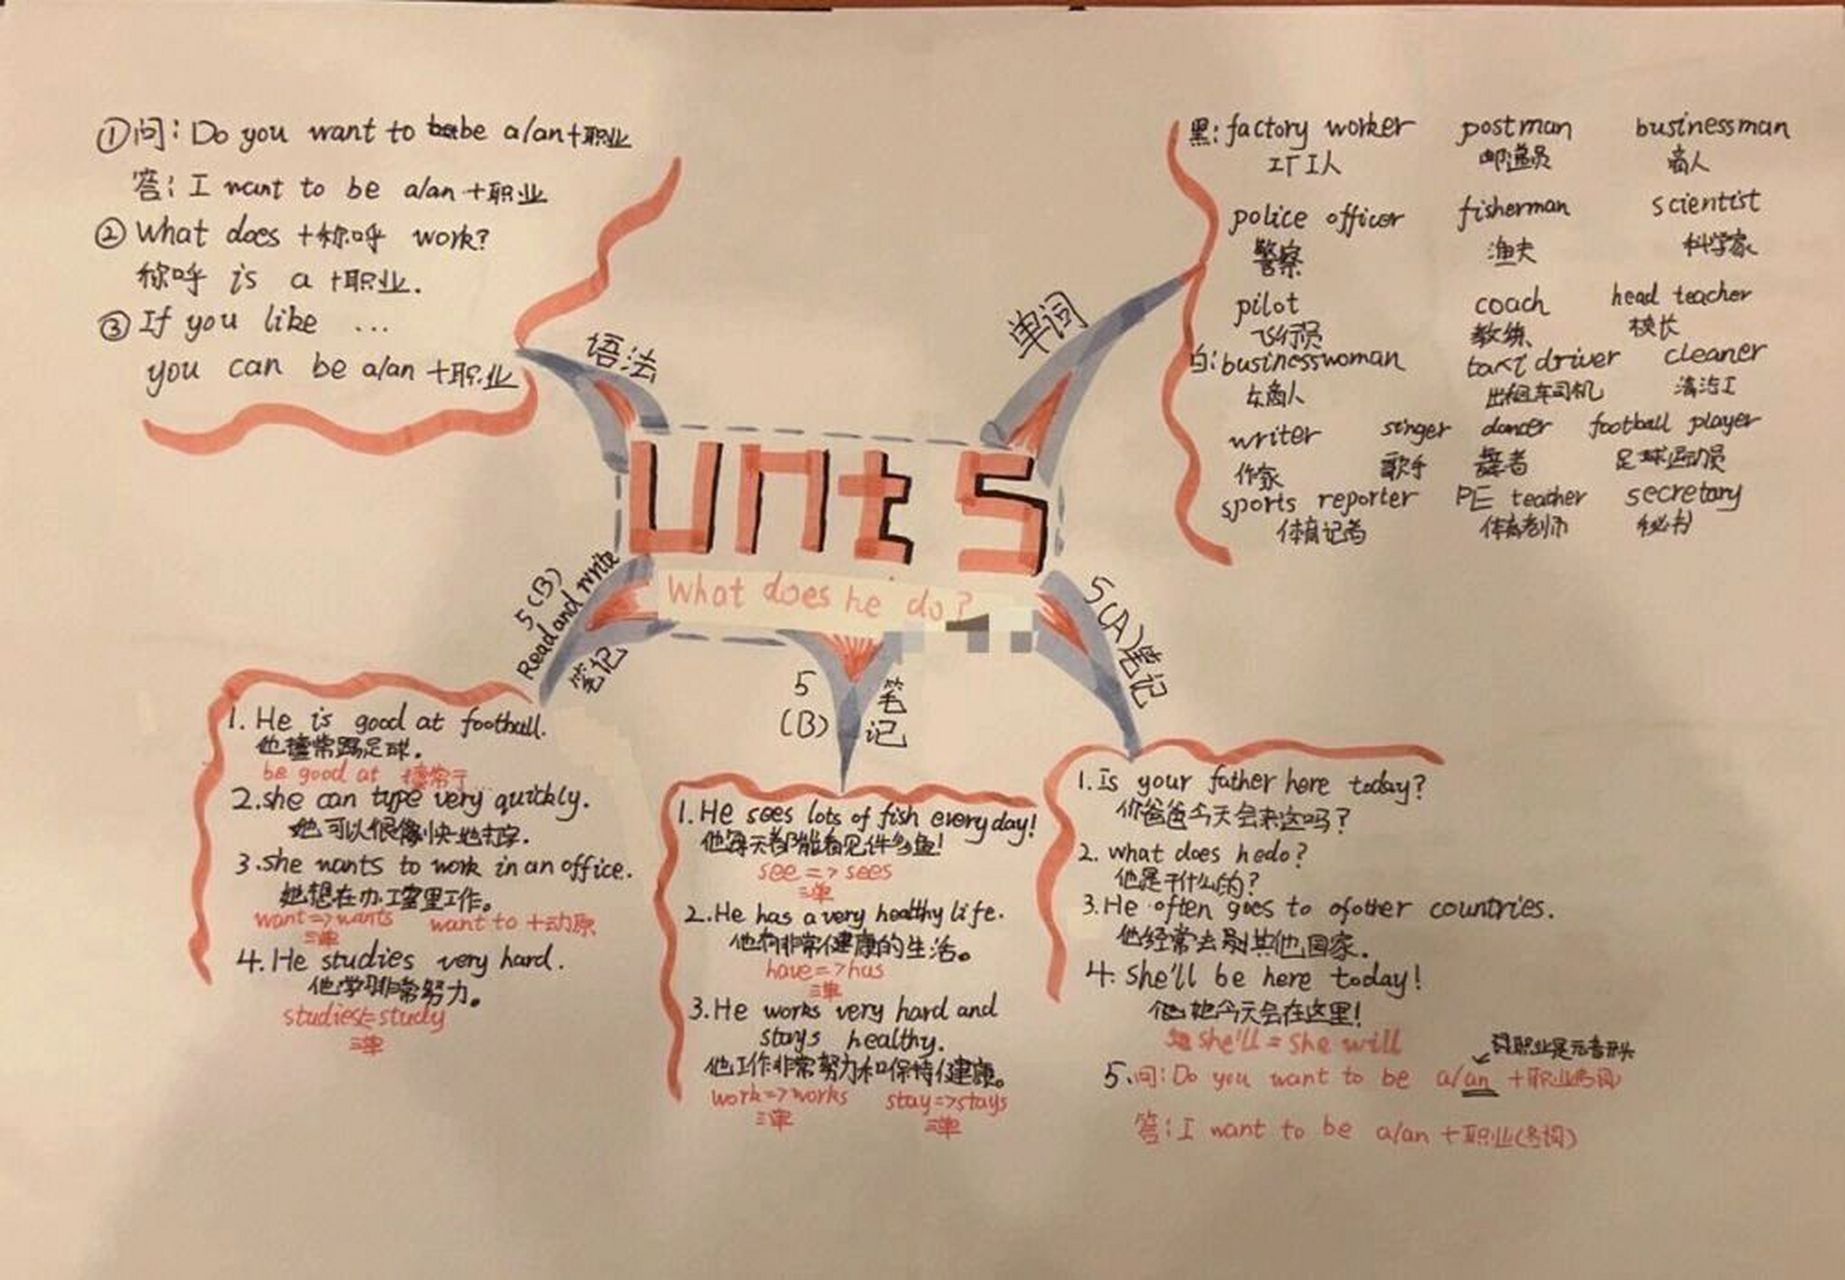 ①问: Do you want to be a/an+职业
答: I want to be a/an +职业
② What does +称呼 work?
称呼 is a +职业.
③ If you like ...
you can be a/an +职业
语法
单词
黑: factory worker postman businessman
工厂工人 邮递员 商人
police officer fisherman scientist
警察 渔夫 科学家
pilot coach head teacher
飞行员 教练 校长
白: businesswoman taxi driver cleaner
女商人 出租车司机 清洁工
writer singer dancer football player
作家 歌手 舞者 足球运动员
sports reporter PE teacher secretary
体育记者 体育老师 秘书
Unit 5
What does he do?
5(B)
Read and write
笔记
1. He is good at football.
他擅常踢足球.
be good at 擅常于
2. she can type very quickly.
她可以很快地打字.
3. she wants to work in an office.
她想在办工室里工作。
want=>wants want to +动原
三单
4. He studies very hard.
他学习非常努力。
studies=study
三单
5
(B)
笔记
1. He sees lots of fish every day!
他每天都能看见许多鱼!
see => sees
三单
2. He has a very healthy life.
他有非常健康的生活。
have=>has
三单
3. He works very hard and
stays healthy.
他工作非常努力和保持健康。
work=>works stay=>stays
三单 三单
5(A)笔记
1. Is your father here today?
你爸爸今天会来这吗?
2. what does he do?
他是干什么的?
3. He often goes to other countries.
他经常去别其他国家.
4. She'll be here today!
她今天会在这里!
she'll = she will
职业是元音开头
5. 问: Do you want to be a/an +职业(名词)
答: I want to be a/an +职业(名词)